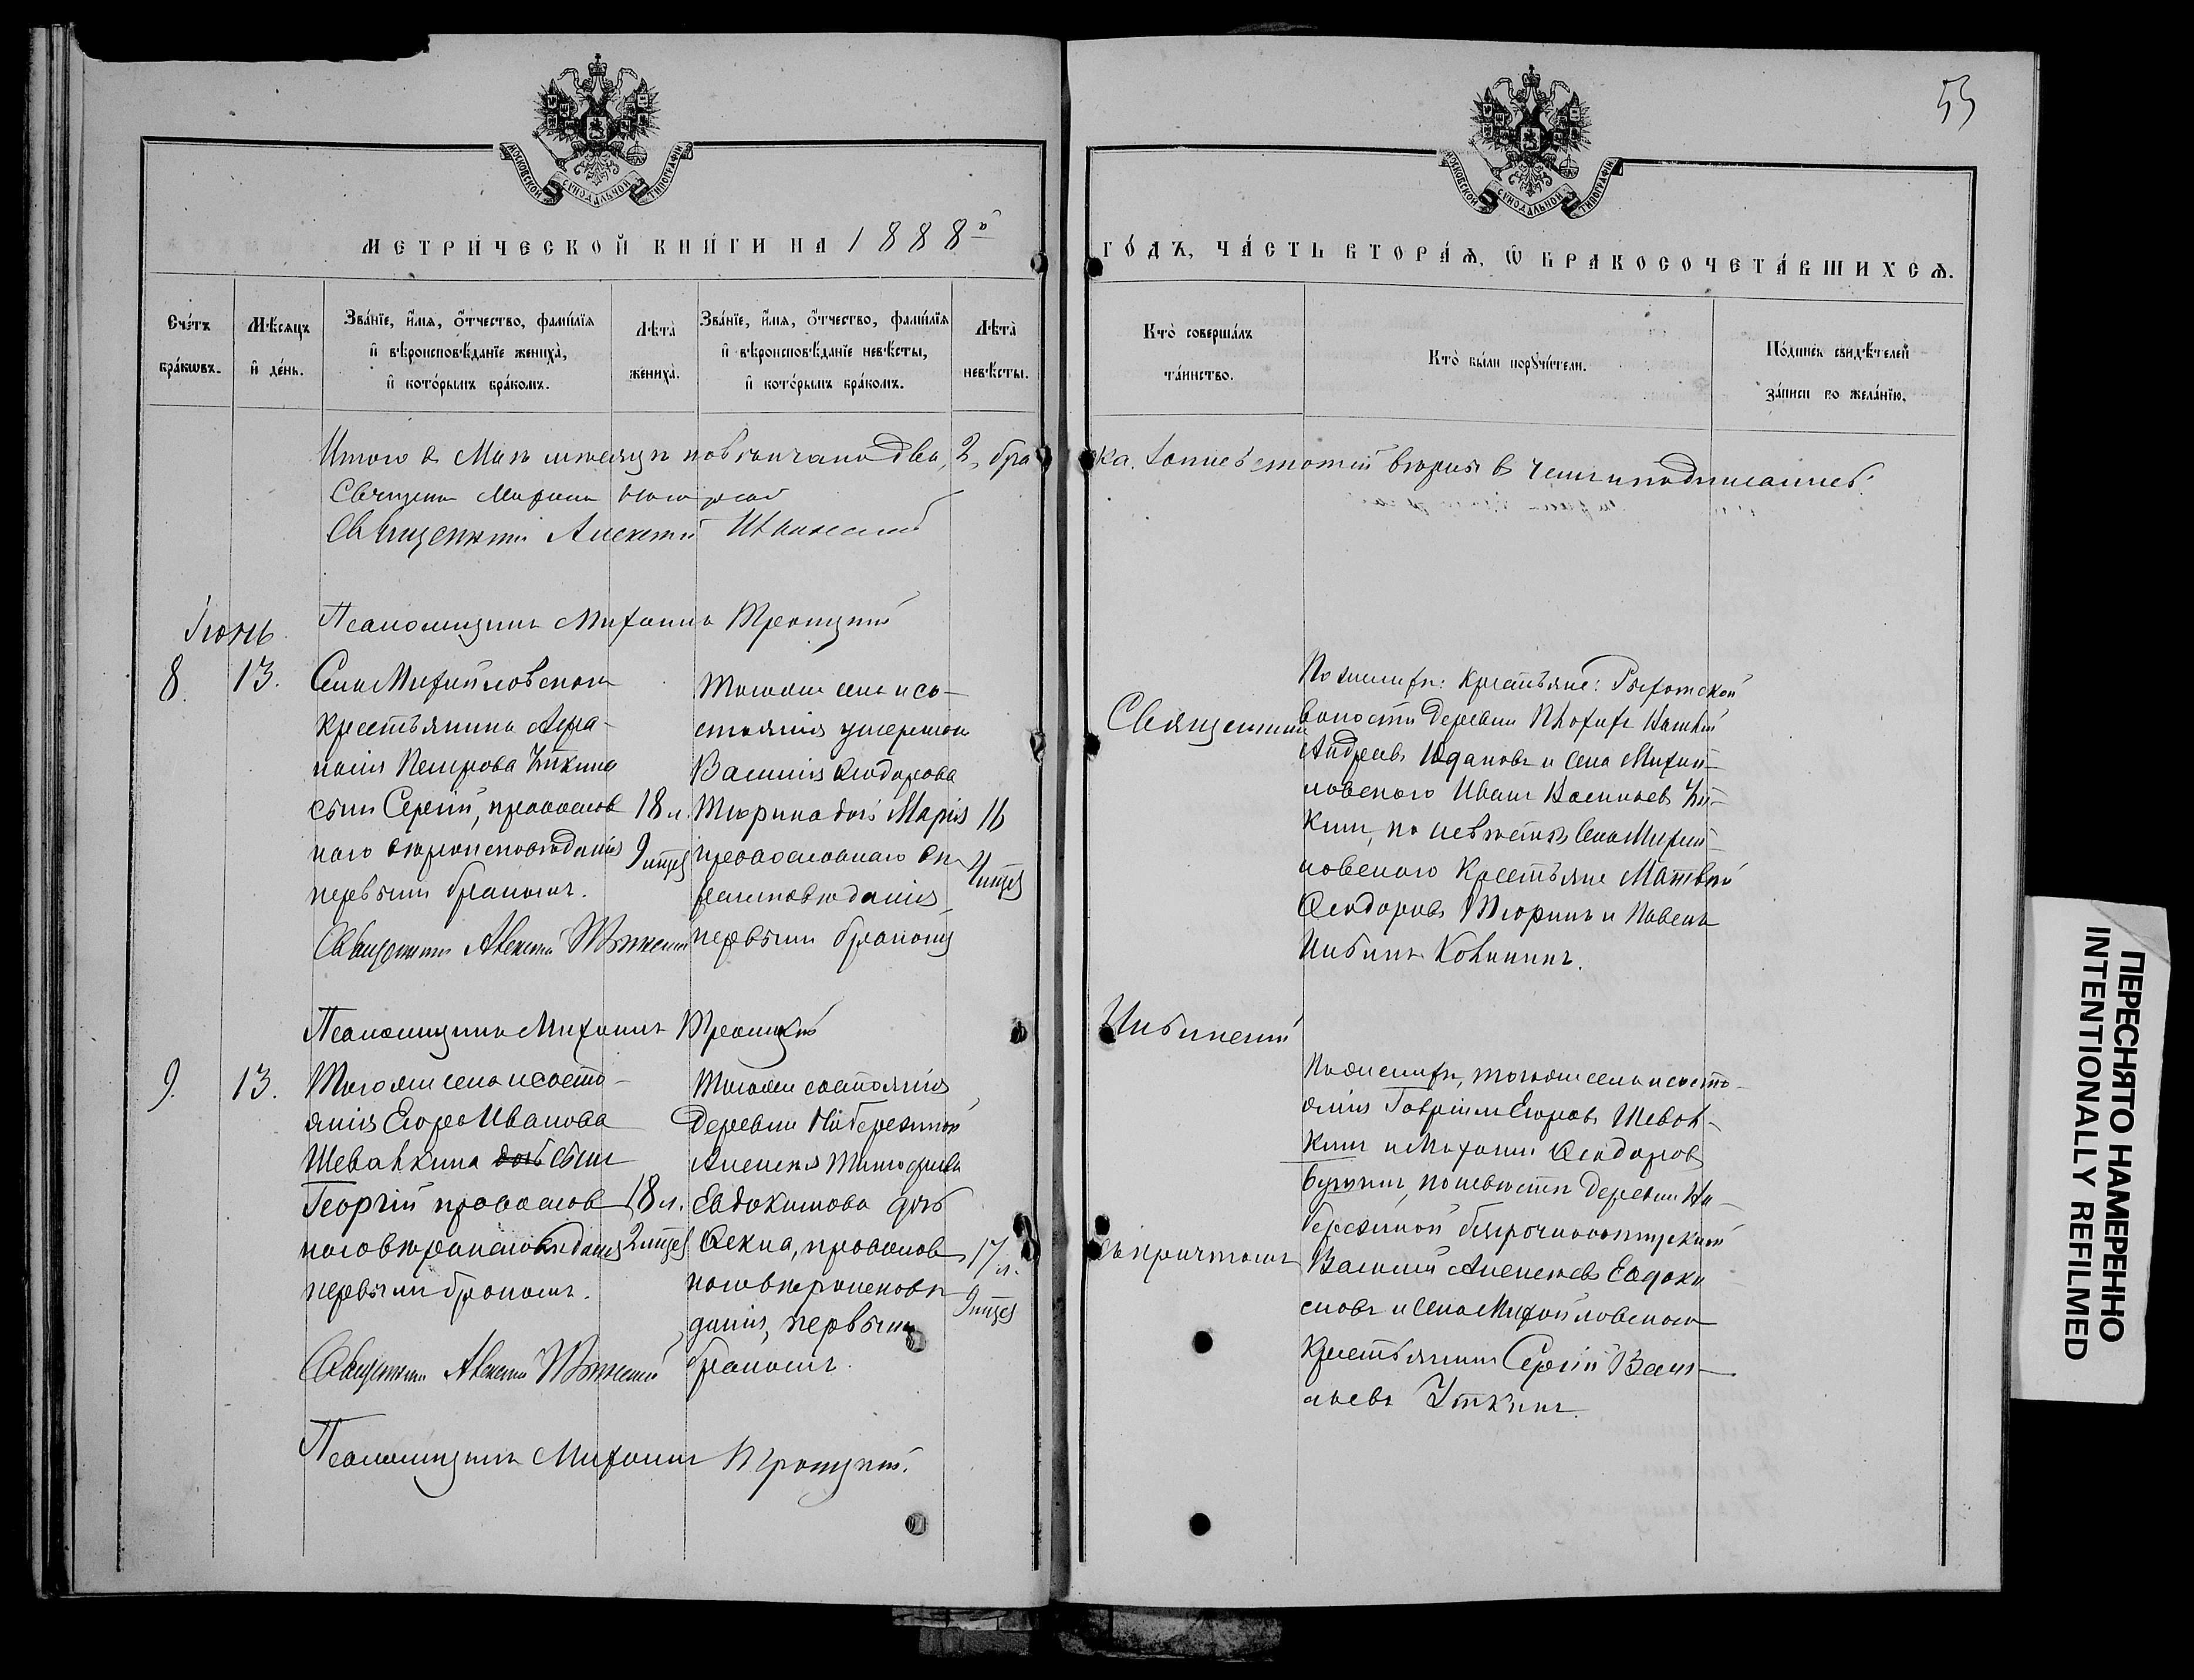 53
МОСКОВСКОЙ СУНОДАЛЬНОЙ ТИПОГРАФІИ
МОСКОВСКОЙ СУНОДАЛЬНОЙ ТИПОГРАФІИ
МЕТРИ́ЧЕСКОЙ КНИ́ГИ НА 1888й
ГО́ДЪ, ЧА́СТЬ ВТОРА́Ѧ, Ѽ БРАКОСОЧЕТА́ВШИХСѦ.
Сче́тъ бра́кѡвъ.
Мѣ́сяцъ и҆ де́нь.
Зва́нїе, и҆́мя, ѻ҆́тчество, фами́лїя
и҆ вѣроисповѣ́данїе жениха̀,
и҆ кото́рымъ бра́комъ.
Лѣта̀ жениха̀.
Зва́нїе, и҆́мя, ѻ҆́тчество, фами́лїя
и҆ вѣроисповѣ́данїе невѣ́сты,
и҆ кото́рымъ бра́комъ.
Лѣта̀ невѣ́сты.
Кто̀ соверша́лъ та́инство.
Кто̀ бы́ли порꙋчи́тели.
По́дпись свидѣ́телей за́писи по жела́нїю.
Итого въ Маѣ мѣсяцѣ повѣнчано два, 2, бра
ка.
Священникъ Алексій
Псаломщикъ Михаилъ Троицкій
Іюнь.
8.
13.
Села Михайловскаго
крестьянина Аѳа-
насія Петрова Уткина
сынъ Сергій, православ
наго вѣроисповѣданія
первымъ бракомъ.
18 л.
9 мцев
Тогоже села и со-
стоянія умершаго
Василія Ѳеодорова
Тюрина дочь Марія
православнаго вѣ-
роисповѣданія,
первымъ бракомъ
16
4 мцев
Священникъ
По женихѣ: крестьяне:
волости деревни
Андреевъ Юдановъ и села Михай-
ловскаго Иванъ Васильевъ Ут-
кинъ, по невѣстѣ села Михай-
ловскаго крестьяне Матвѣй
Ѳеодоровъ Тюринъ и Павелъ
Священникъ Алексій
Псаломщикъ Михаилъ Троицкій
9.
13.
Тогоже села и состо-
янія Егора Иванова
Шевалкина дочь сынъ
Георгій православ
наго вѣроисповѣданія
первымъ бракомъ.
18 л.
2 мцев
Тогоже состоянія
деревни Набережной
Алексѣя Тимофеева
Евдокимова дочь
Ѳекла, православ
наго вѣроисповѣ
данія, первымъ
бракомъ.
17 л.
9 мцев
съ причтомъ
По женихѣ, тогоже села и состо-
янія Гавріилъ Егоровъ Шевал-
кинъ и Михаилъ Ѳеодоровъ
по невѣстѣ деревни На-
бережной
Василій Алексѣевъ Евдоки
мовъ и села Михайловскаго
крестьянинъ Сергій Васи-
льевъ Уткинъ.
Священникъ Алексій
Псаломщикъ Михаилъ Троицкій.
ПЕРЕСНЯТО НАМЕРЕННО
INTENTIONALLY REFILMED